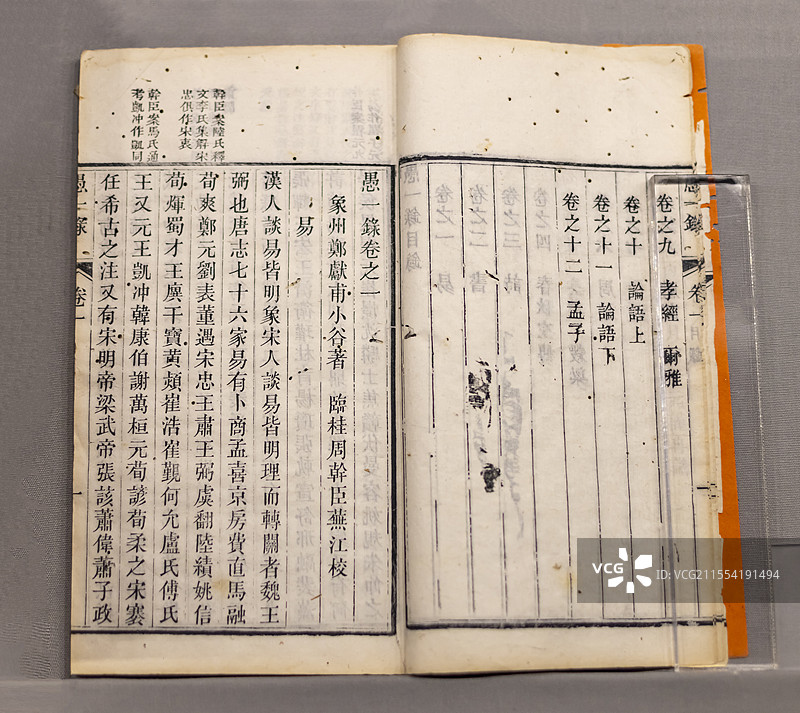 愚一錄
卷一目錄
卷之九 孝經 爾雅
卷之十 論語上
卷之十一 論語下
卷之十二 孟子
愚一錄卷之一
象州鄭獻甫小谷著 臨桂周幹臣蕪江校
易
漢人談易皆明象宋人談易皆明理而轉關者魏王
弼也唐志七十六家易有卜商孟喜京房費直馬融
荀爽鄭元劉表董遇宋忠王肅王弼虞翻陸績姚信
荀煇蜀才王廙干寶黃穎崔浩崔覲何允盧氏傅氏
王又元王凱冲韓康伯謝萬桓元荀諺荀柔之宋褰
任希古之注又有宋明帝梁武帝張該蕭偉蕭子政
幹臣案陸氏釋
文李氏集解宋
忠俱作宋衷
幹臣案馬氏通
考凱冲作凱同
愚一錄
卷一
vcg
VCG211554191494